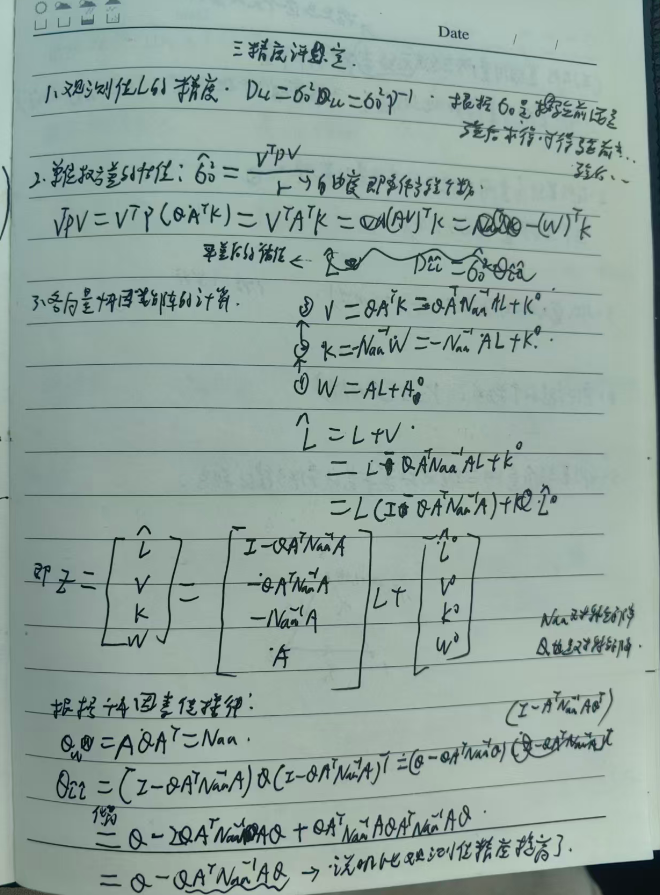 Date / /
三 精度评定
1. 观测值L的精度. D_LL = σ₀²Q_LL = σ₀²P⁻¹. 根据σ₀是
2. 单位权方差的估值: σ̂₀² = VᵀPV / r → 自由度即条件方程个数.
VᵀPV = VᵀP(QAᵀK) = VᵀAᵀK = (AV)ᵀK = -(W)ᵀK
平差后的估值 ← L̂ D_L̂L̂ = σ̂₀²Q_L̂L̂
3. 各向量协因数阵的计算.
③ V = QAᵀK = QAᵀNaa⁻¹AL + K⁰
② K = -Naa⁻¹W = -Naa⁻¹AL + K⁰.
① W = AL + A₀⁰
L̂ = L + V.
= L - QAᵀNaa⁻¹AL + K⁰
= L(I - QAᵀNaa⁻¹A) + L̂⁰
即 Z = [L̂ V K W] = [I-QAᵀNaa⁻¹A -QAᵀNaa⁻¹A -Naa⁻¹A A] L + [L̂⁰ V⁰ K⁰ W⁰]
Naa是对称方阵
Q也是对称阵.
根据协因素传播律:
(I-AᵀNaa⁻¹AQᵀ)
Q_WW = AQAᵀ = Naa.
Q_L̂L̂ = (I-QAᵀNaa⁻¹A)Q(I-QAᵀNaa⁻¹A)ᵀ = (Q-QAᵀNaa⁻¹Q)(Q-QAᵀNaa⁻¹A)ᵀ
= Q - 2QAᵀNaa⁻¹AQ + QAᵀNaa⁻¹AQAᵀNaa⁻¹AQ.
= Q - QAᵀNaa⁻¹AQ → 说明比观测值精度提高了.